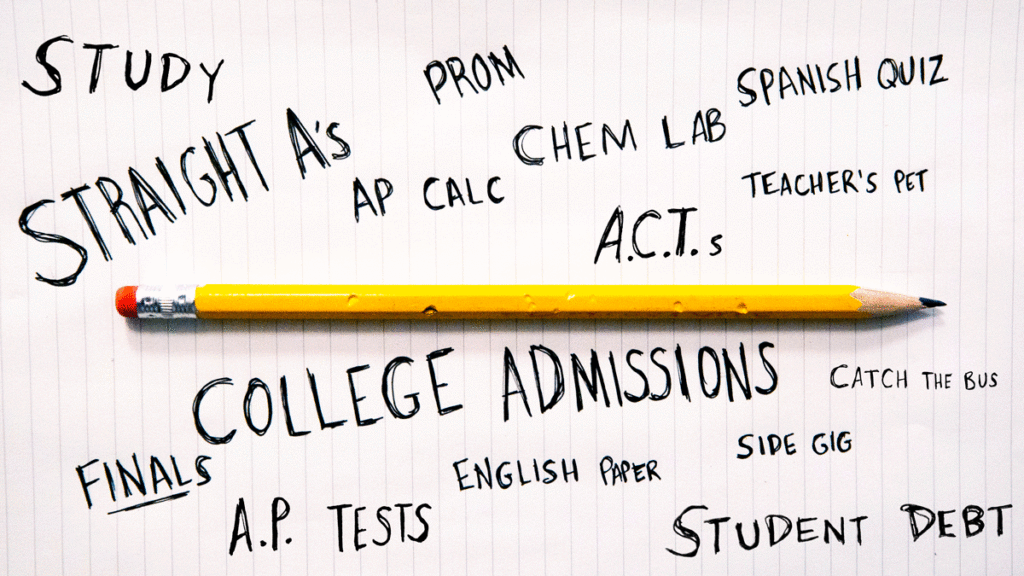 STUDY
PROM
SPANISH QUIZ
STRAIGHT A's
CHEM LAB
AP CALC
TEACHER'S PET
A.C.T.s
COLLEGE ADMISSIONS
CATCH THE BUS
SIDE GIG
FINALS
ENGLISH PAPER
A.P. TESTS
STUDENT DEBT